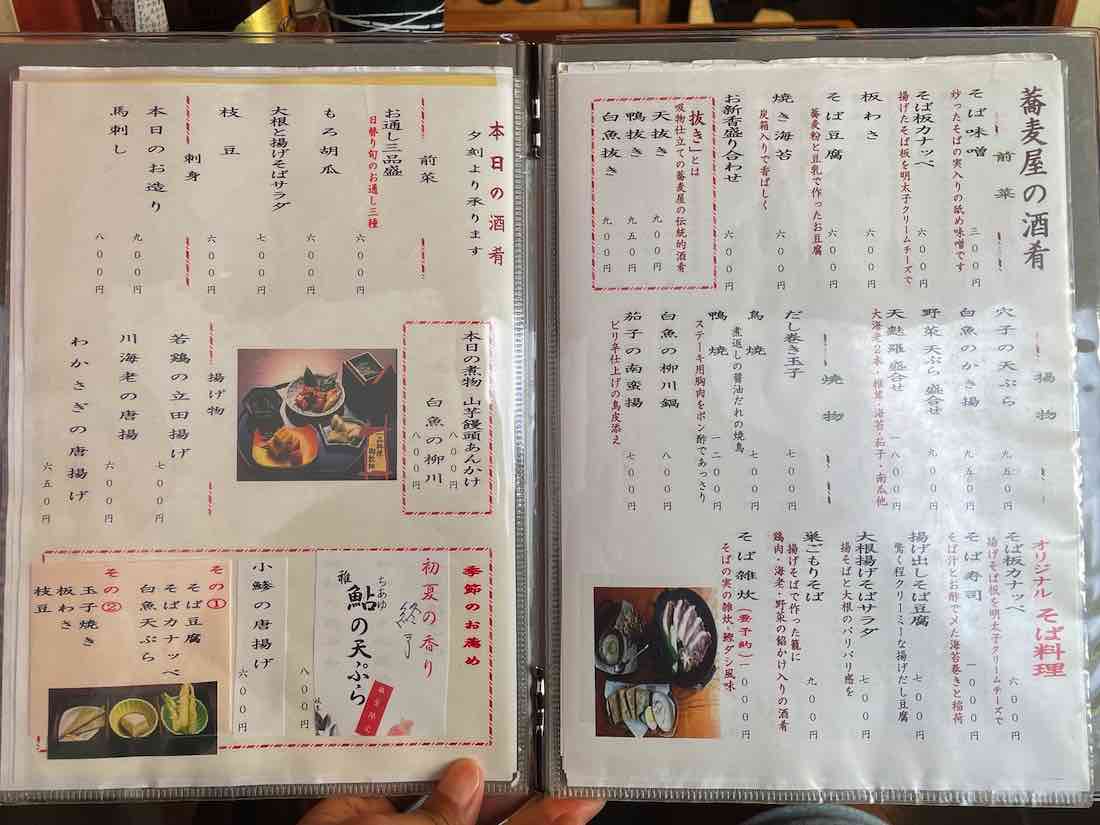 蕎麦屋の酒肴
前菜
そば味噌 三〇〇円
炒ったそばの実入りの舐め味噌です
そば板カナッペ 六〇〇円
揚げたそば板を明太子クリームチーズで
板わさ 六〇〇円
そば豆腐 六〇〇円
蕎麦粉と豆乳で作ったお豆腐
焼き海苔 六〇〇円
炭箱入りで香ばしく
お新香盛り合わせ 六〇〇円
抜き」とは
吸物仕立ての蕎麦屋の伝統的酒肴
天抜き 九〇〇円
鴨抜き 九五〇円
白魚抜き 九〇〇円
揚物
穴子の天ぷら 九五〇円
白魚のかき揚 九五〇円
野菜天ぷら盛合せ 九〇〇円
天麩羅盛合せ 一八〇〇円
大海老2本・椎茸・海苔・茄子・南瓜他
焼物
だし巻き玉子 七〇〇円
鳥焼 七〇〇円
煮返しの醤油だれの焼鳥
鴨焼 一二〇〇円
ステーキ用胸肉をポン酢であっさり
白魚の柳川鍋 八〇〇円
茄子の南蛮揚 七〇〇円
ピリ辛仕上げの鳥皮添え
オリジナル そば料理
そば板カナッペ 六〇〇円
揚げそば板を明太子クリームチーズで
そば寿司 一〇〇〇円
そば汁とお酢で〆た海苔巻きと稲荷
揚げ出しそば豆腐 七〇〇円
驚く程クリーミーな揚げだし豆腐
大根揚げそばサラダ 七〇〇円
揚げそばと大根のパリパリ感を
巣ごもりそば 九〇〇円
揚げそばで作った籠に
鶏肉・海老・野菜の餡かけ入りの酒肴
そば雑炊(要予約) 一〇〇〇円
そばの実の雑炊・鰹ダシ風味
本日の酒肴
夕刻より承ります
前菜
お通し三品盛 六〇〇円
日替り旬のお通し三種
もろ胡瓜 六〇〇円
大根と揚げそばサラダ 七〇〇円
枝豆 六〇〇円
刺身
本日のお造り 九〇〇円
馬刺し 八〇〇円
本日の煮物 山芋饅頭あんかけ 八〇〇円
白魚の柳川 八〇〇円
揚げ物
若鶏の立田揚げ 七〇〇円
川海老の唐揚 六〇〇円
わかさぎの唐揚げ 六五〇円
季節のお薦め
初夏の香り
終了
稚鮎の天ぷら
ちあゆ
八〇〇円
小鯵の唐揚げ 六〇〇円
その①
そば豆腐
そばカナッペ
白魚天ぷら
その②
玉子焼き
板わさ
枝豆